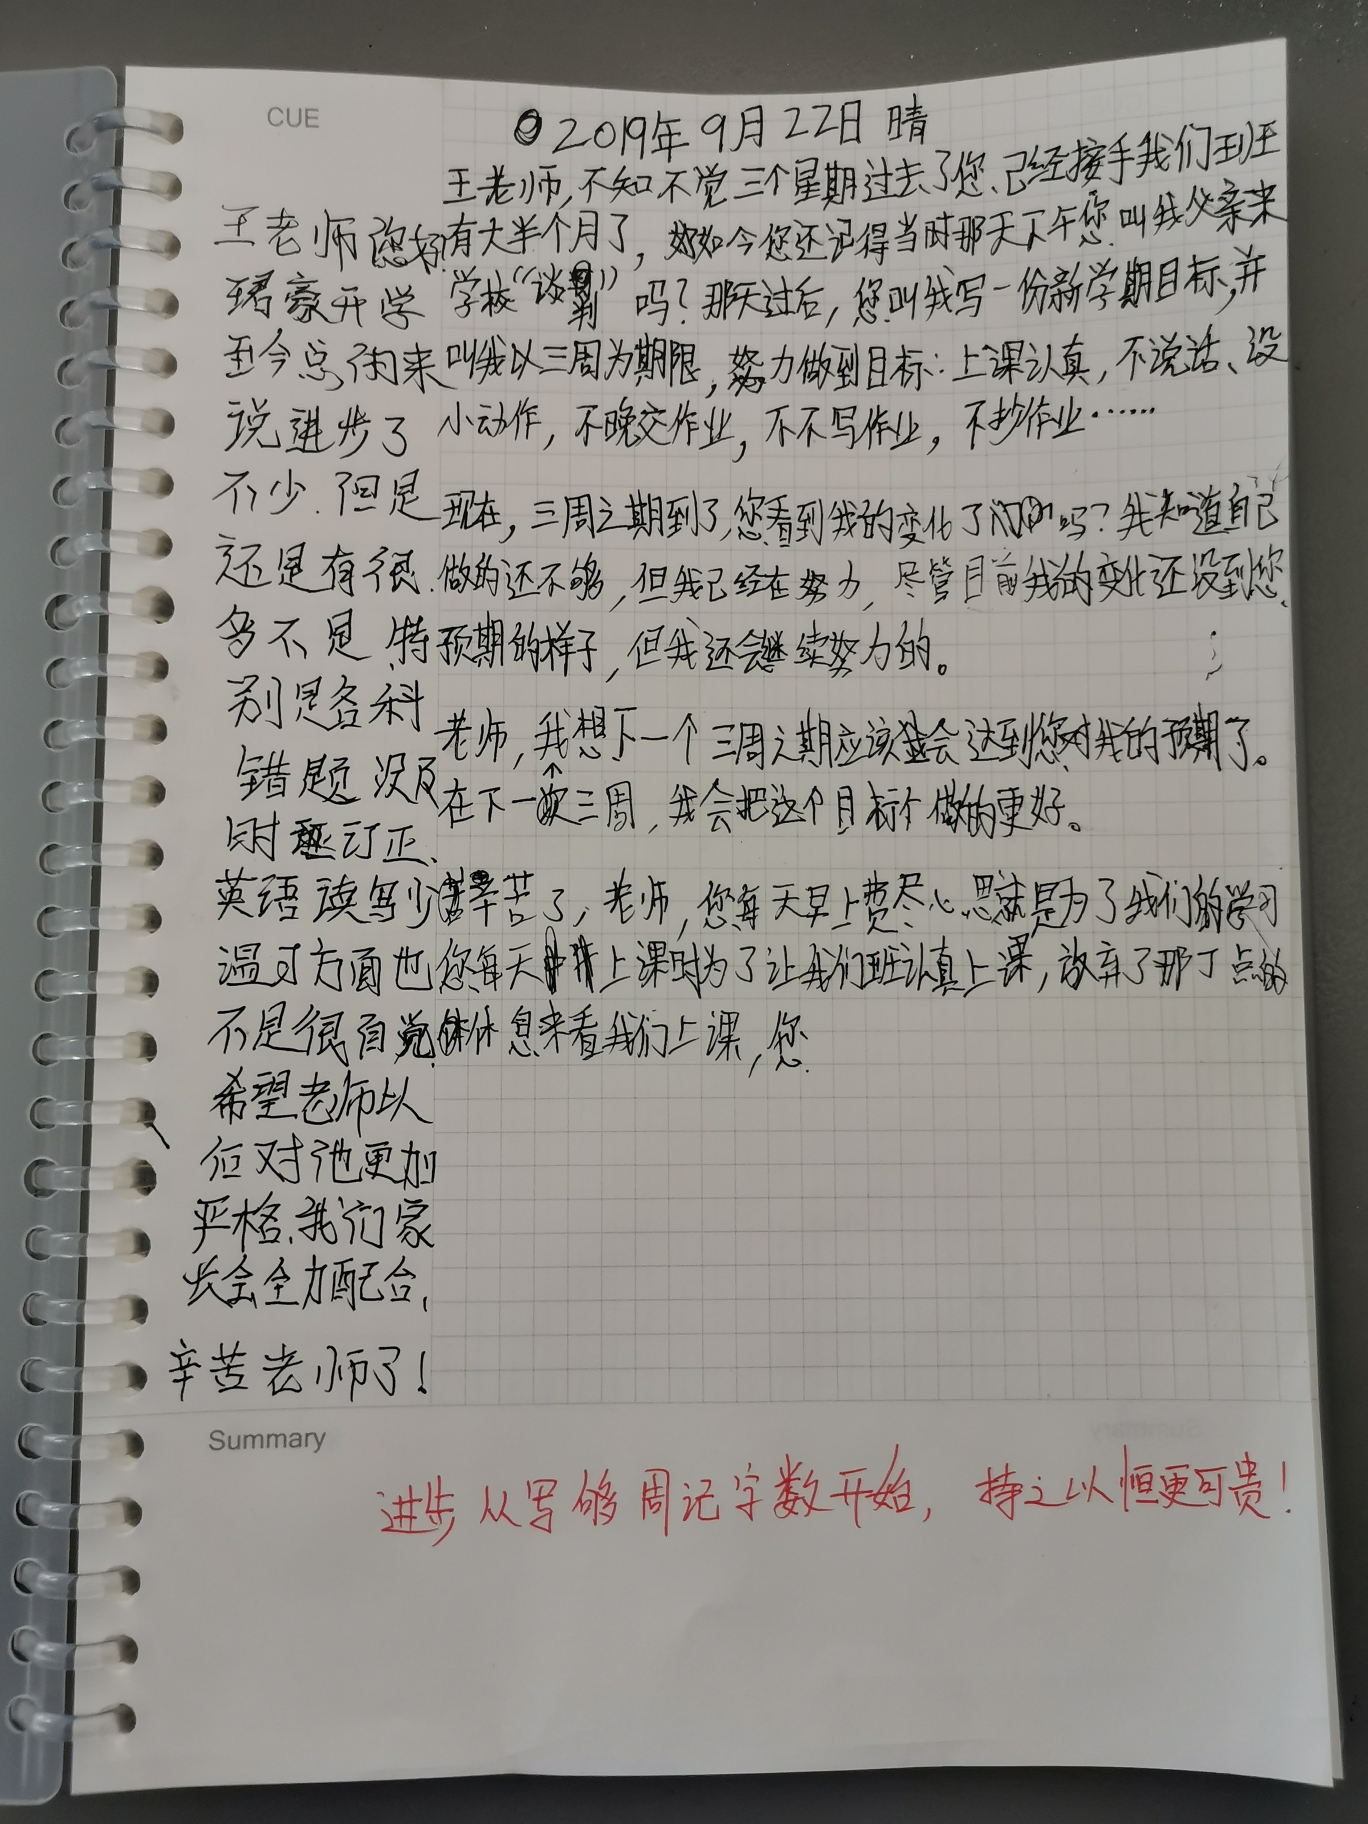 CUE
2019年9月22日 晴
王老师,不知不觉三个星期过去了您、已经接手我们班
有大半个月了,如今您还记得当时那天下午您叫我父亲来
学校“谈判”吗?那天过后,您叫我写一份新学期目标,并
叫我以三周为期限,努力做到目标:上课认真,不说话、没
小动作,不晚交作业,不不写作业,不抄作业……
现在,三周之期到了,您看到我的变化了吗?我知道自己
做的还不够,但我已经在努力,尽管目前我的变化还没到您
预期的样子,但我还会继续努力的。
老师,我想下一个三周之期应该会达到您对我的预期了。
在下一次三周,我会把这个目标做的更好。
辛苦了,老师,您每天早上费尽心思就是为了我们的学习
您每天上课时为了让我们班认真上课,放弃了那丁点的
休息来看我们上课,您
王老师您好
珺豪开学
至今总的来
说进步了
不少.但是
还是有很
多不足.特
别是各科
错题没及
时订正、
英语读写少
温习方面也
不是很自觉
希望老师以
后对他更加
严格.我们家
长会全力配合,
辛苦老师了!
Summary
进步从写够周记字数开始,持之以恒更可贵!